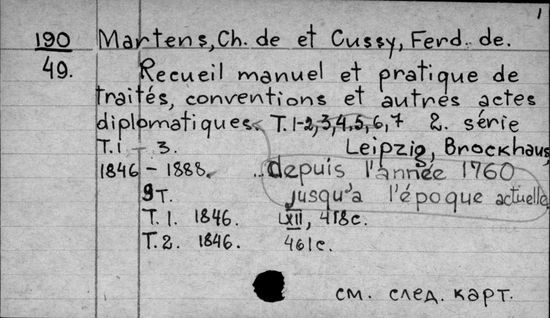 1
190 Martens, Ch. de et Cussy, Ferd. de.
49. Recueil manuel et pratique de
traités, conventions et autres actes
diplomatiques. T. 1-2,3,4,5,6,7 2. série
T. 1 - 3. Leipzig, Brockhaus,
1846 - 1888. ...depuis l'année 1760
9 T. jusqu'a l'époque actuelle.
T. 1. 1846. LXII, 418 c.
T. 2. 1846. 461 c.
см. след. карт.